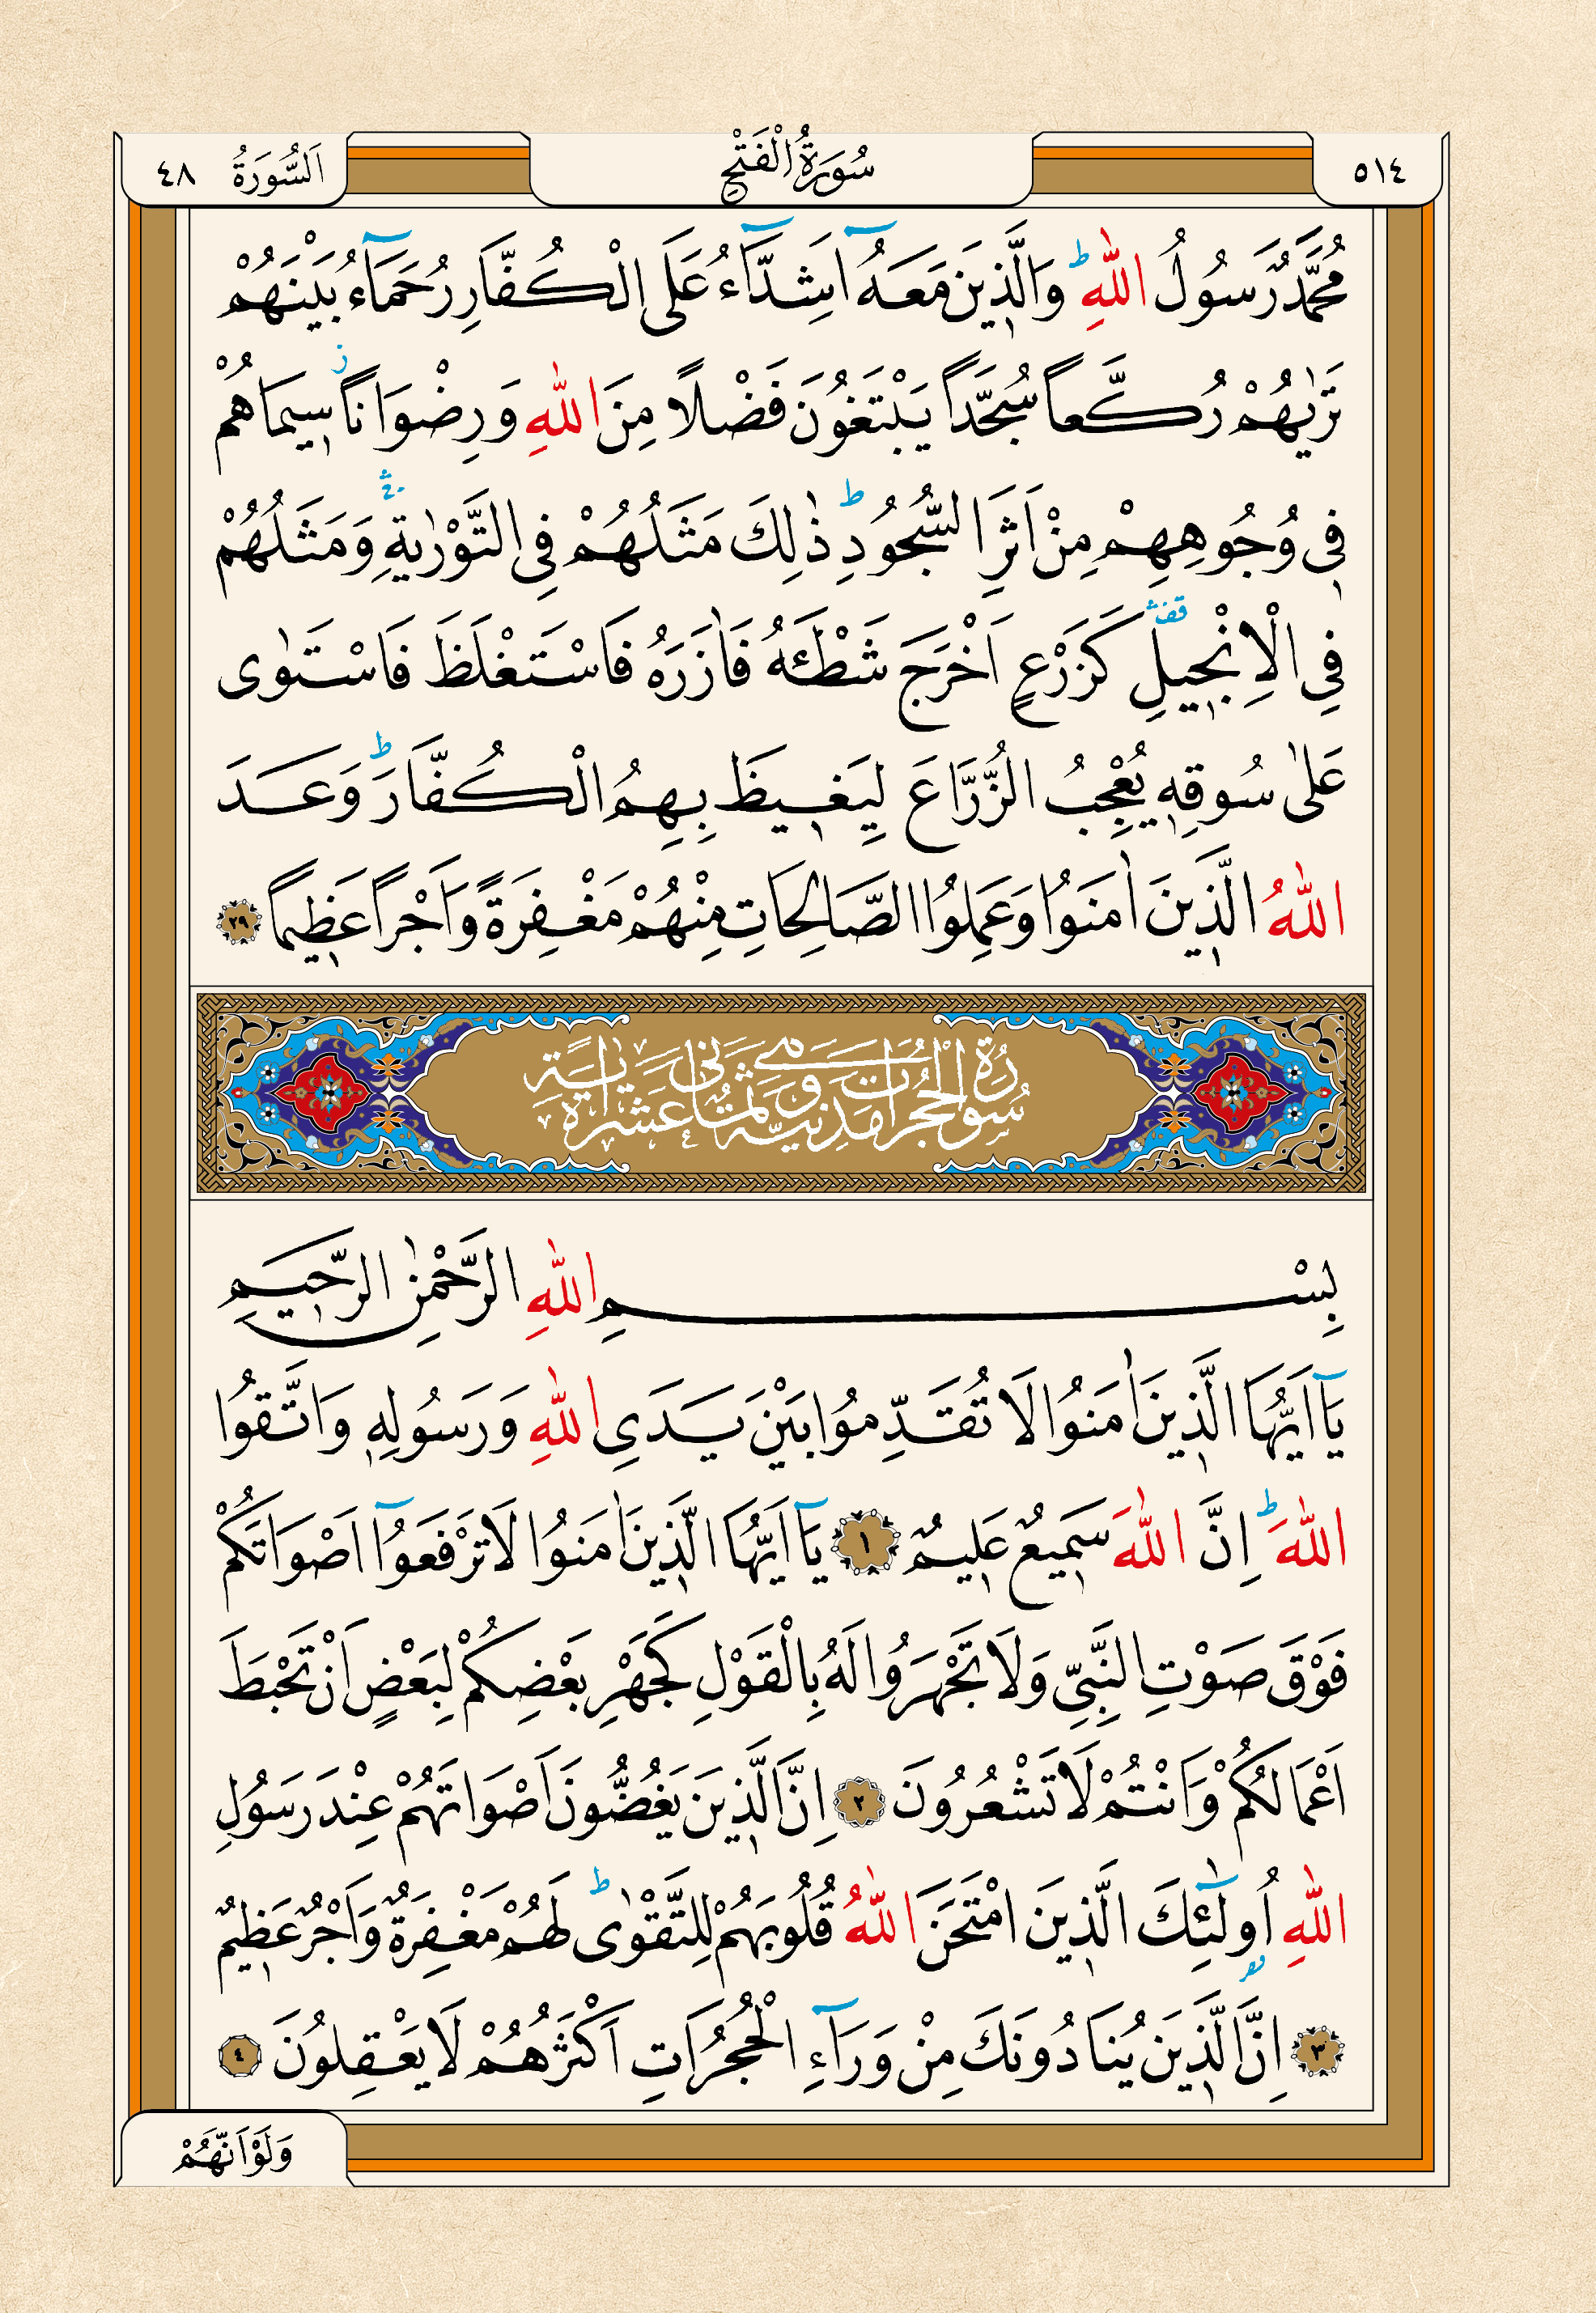 ٥١٤ سُورَةُ الْفَتْحِ اَلسُّورَةُ ٤٨
مُحَمَّدٌ رَسُولُ اللّٰهِ ۜ وَالَّذ۪ينَ مَعَهُٓ اَشِدَّٓاءُ عَلَى الْكُفَّارِ رُحَمَٓاءُ بَيْنَهُمْ
تَرٰيهُمْ رُكَّعاً سُجَّداً يَبْتَغُونَ فَضْلاً مِنَ اللّٰهِ وَرِضْوَاناًۘ س۪يمَاهُمْ
ف۪ي وُجُوهِهِمْ مِنْ اَثَرِ السُّجُودِۜ ذٰلِكَ مَثَلُهُمْ فِي التَّوْرٰيةِۚۛ وَمَثَلُهُمْ
فِي الْاِنْج۪يلِ۠ۛ كَزَرْعٍ اَخْرَجَ شَطْـَٔهُ فَاٰزَرَهُ فَاسْتَغْلَظَ فَاسْتَوٰى
عَلٰى سُوقِه۪ يُعْجِبُ الزُّرَّاعَ لِيَغ۪يظَ بِهِمُ الْكُفَّارَۜ وَعَدَ
اللّٰهُ الَّذ۪ينَ اٰمَنُوا وَعَمِلُوا الصَّالِحَاتِ مِنْهُمْ مَغْفِرَةً وَاَجْراً عَظ۪يماً ٢٩
سُورَةُ الْحُجُرَاتِ مَدَنِيَّةٌ وَهِيَ ثَمَانِي عَشْرَةَ اٰيَةً
بِسْمِ اللّٰهِ الرَّحْمٰنِ الرَّح۪يمِ
يَٓا اَيُّهَا الَّذ۪ينَ اٰمَنُوا لَا تُقَدِّمُوا بَيْنَ يَدَيِ اللّٰهِ وَرَسُولِه۪ وَاتَّقُوا
اللّٰهَۜ اِنَّ اللّٰهَ سَم۪يعٌ عَل۪يمٌ ١ يَٓا اَيُّهَا الَّذ۪ينَ اٰمَنُوا لَا تَرْفَعُٓوا اَصْوَاتَكُمْ
فَوْقَ صَوْتِ النَّبِيِّ وَلَا تَجْهَرُوا لَهُ بِالْقَوْلِ كَجَهْرِ بَعْضِكُمْ لِبَعْضٍ اَنْ تَحْبَطَ
اَعْمَالُكُمْ وَاَنْتُمْ لَا تَشْعُرُونَ ٢ اِنَّ الَّذ۪ينَ يَغُضُّونَ اَصْوَاتَهُمْ عِنْدَ رَسُولِ
اللّٰهِ اُو۬لٰٓئِكَ الَّذ۪ينَ امْتَحَنَ اللّٰهُ قُلُوبَهُمْ لِلتَّقْوٰىۜ لَهُمْ مَغْفِرَةٌ وَاَجْرٌ عَظ۪يمٌ
٣ اِنَّ الَّذ۪ينَ يُنَادُونَكَ مِنْ وَرَٓاءِ الْحُجُرَاتِ اَكْثَرُهُمْ لَا يَعْقِلُونَ ٤
وَلَوْ اَنَّهُمْ